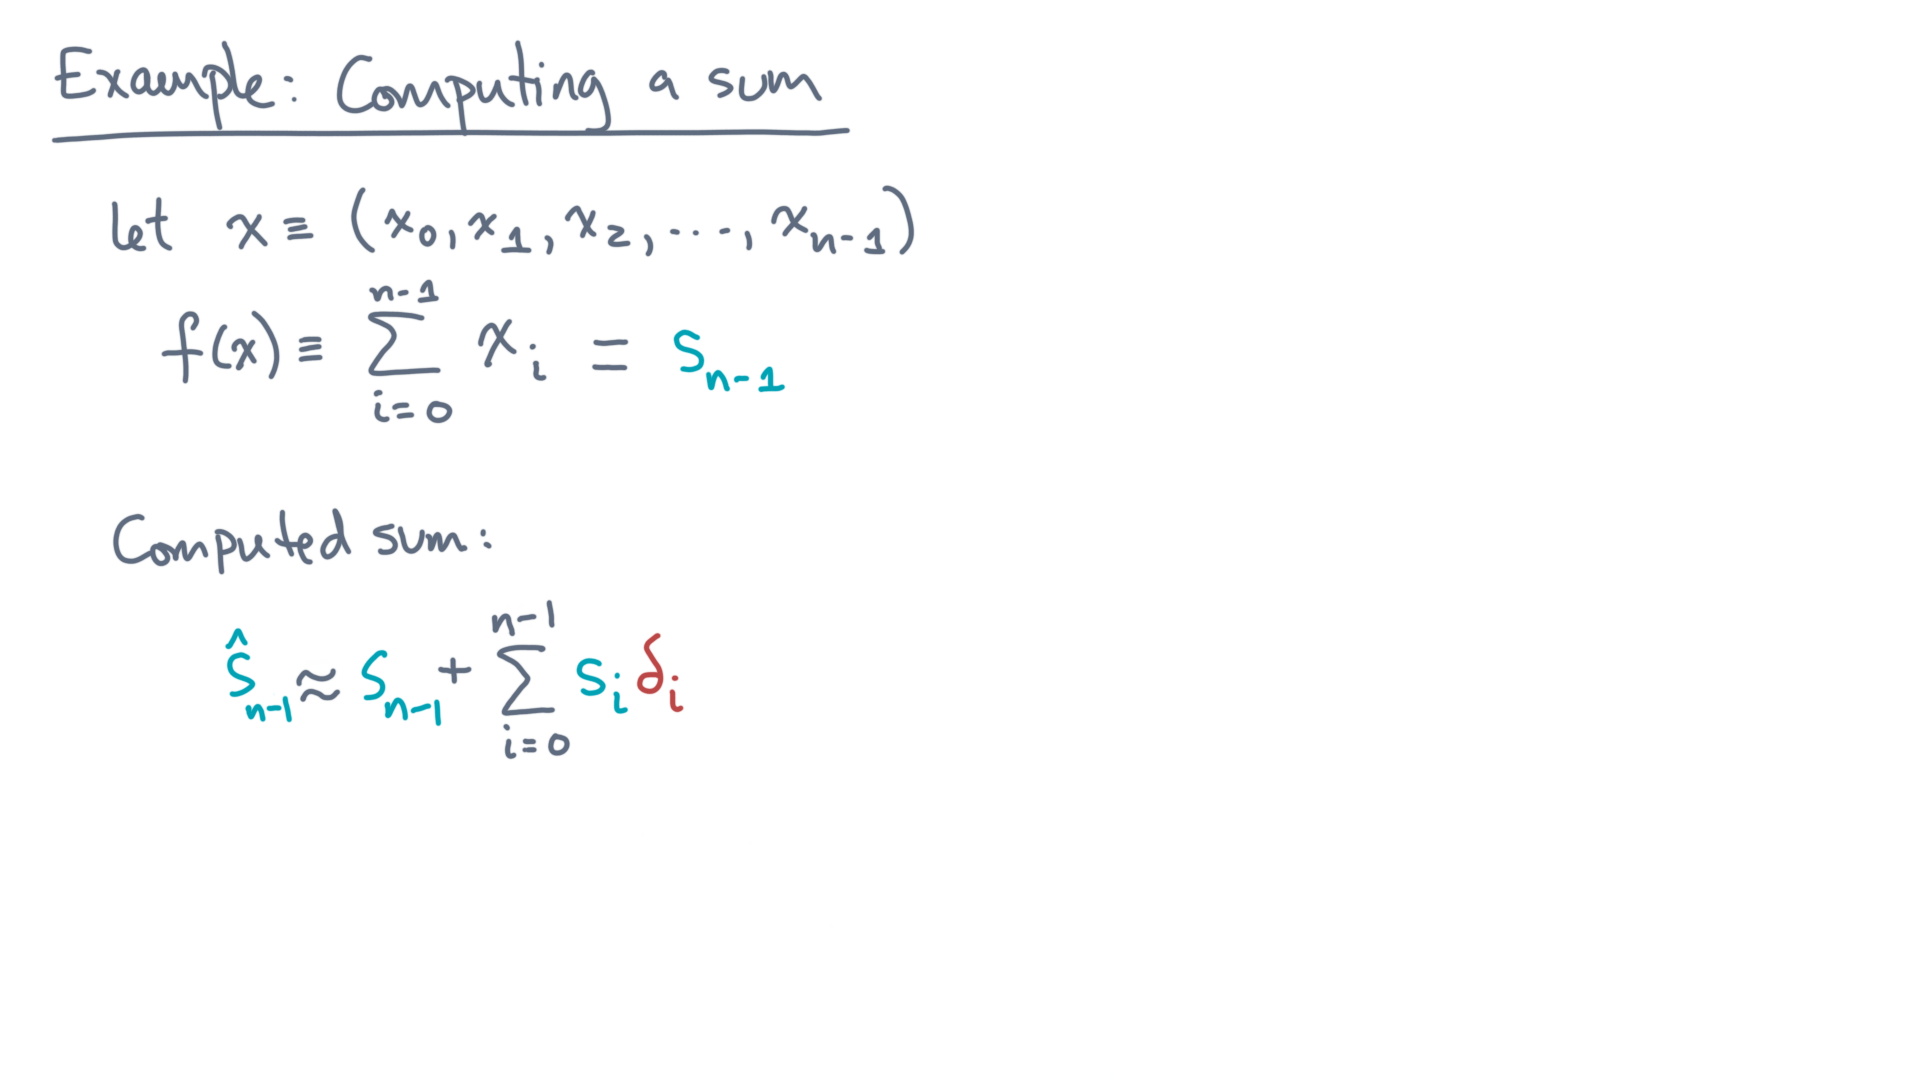 Example: Computing a sum
let x ≡ (x₀, x₁, x₂, ..., xₙ₋₁)
f(x) ≡ ∑ᵢ₌₀ⁿ⁻¹ xᵢ = sₙ₋₁
Computed sum:
ŝₙ₋₁ ≈ sₙ₋₁ + ∑ᵢ₌₀ⁿ⁻¹ sᵢ δᵢ